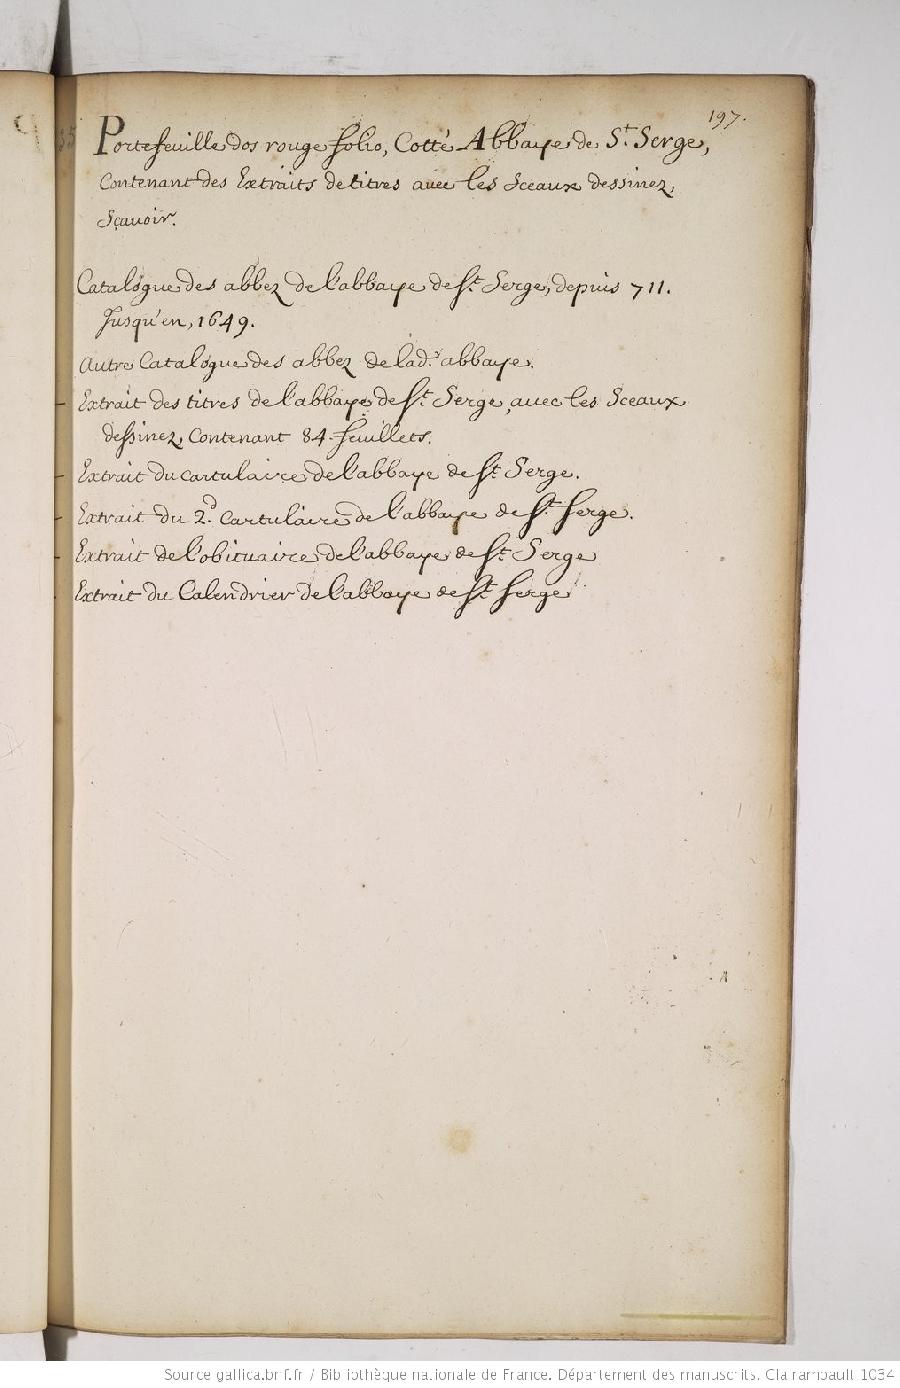 197.
35
Portefeuille dos rouge folio, Cotté Abbaye de St. Serge,
Contenant des Extraits de titres avec les Sceaux dessinez,
Sçavoir.
Catalogue des abbez de l'abbaye de St. Serge, depuis 711.
Jusqu'en, 1649.
Autre Catalogue des abbez de lad. abbaye.
Extrait des titres de l'abbaye de St. Serge, avec les Sceaux
dessinez, Contenant 84. feuillets.
Extrait du cartulaire de l'abbaye de St. Serge.
Extrait du 2d. cartulaire de l'abbaye de St. Serge.
Extrait de l'obituaire de l'abbaye de St. Serge
Extrait du Calendrier de l'abbaye de St. Serge
Source gallica.bnf.fr / Bibliothèque nationale de France. Département des manuscrits. Clairambault 1034